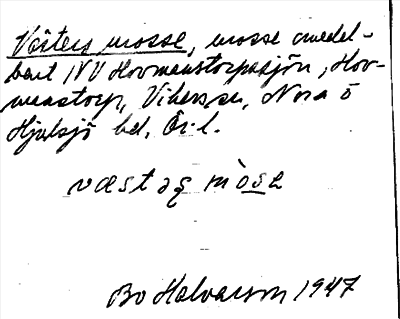 Västers mosse, mosse omedel-
bart NV Hovmanstorpasjön, Hov-
manstorp, Vikers sn, Nora o
Hjulsjö bd, Ör. l.
væstəṣ mòsə
Bo Halvarson 1947